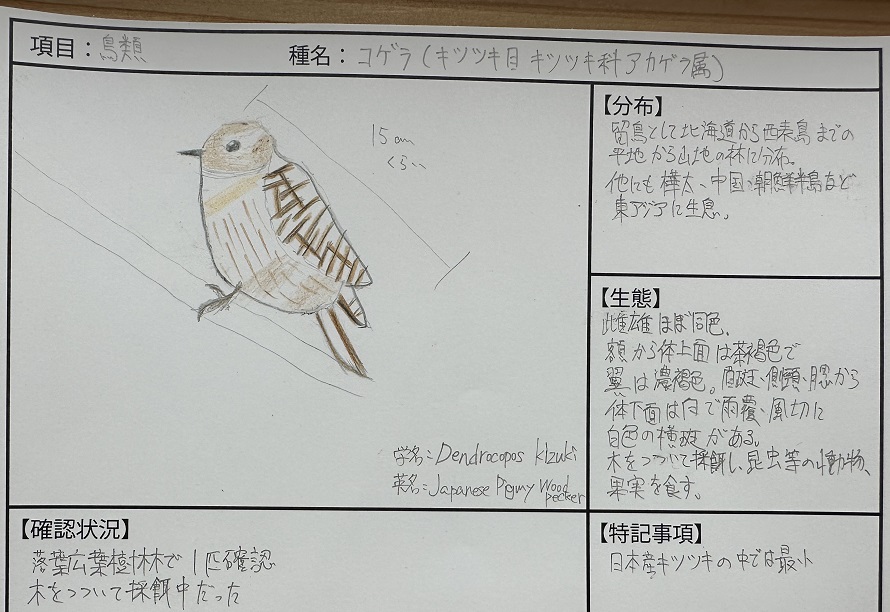 項目：鳥類
種名：コゲラ（キツツキ目 キツツキ科 アカゲラ属）
15cm
くらい
学名：Dendrocopos kizuki
英名：Japanese Pigmy Wood
pecker
【分布】
留鳥として北海道から西表島までの
平地から山地の林に分布。
他にも樺太、中国、朝鮮半島など
東アジアに生息。
【生態】
雌雄ほぼ同色。
額から体上面は茶褐色で
翼は濃褐色。眉斑、側頸、腮から
体下面は白で雨覆、風切に
白色の横斑がある。
木をつついて採餌し、昆虫等の小動物、
果実を食す。
【確認状況】
落葉広葉樹林で1匹確認
木をつついて採餌中だった
【特記事項】
日本産キツツキの中では最小